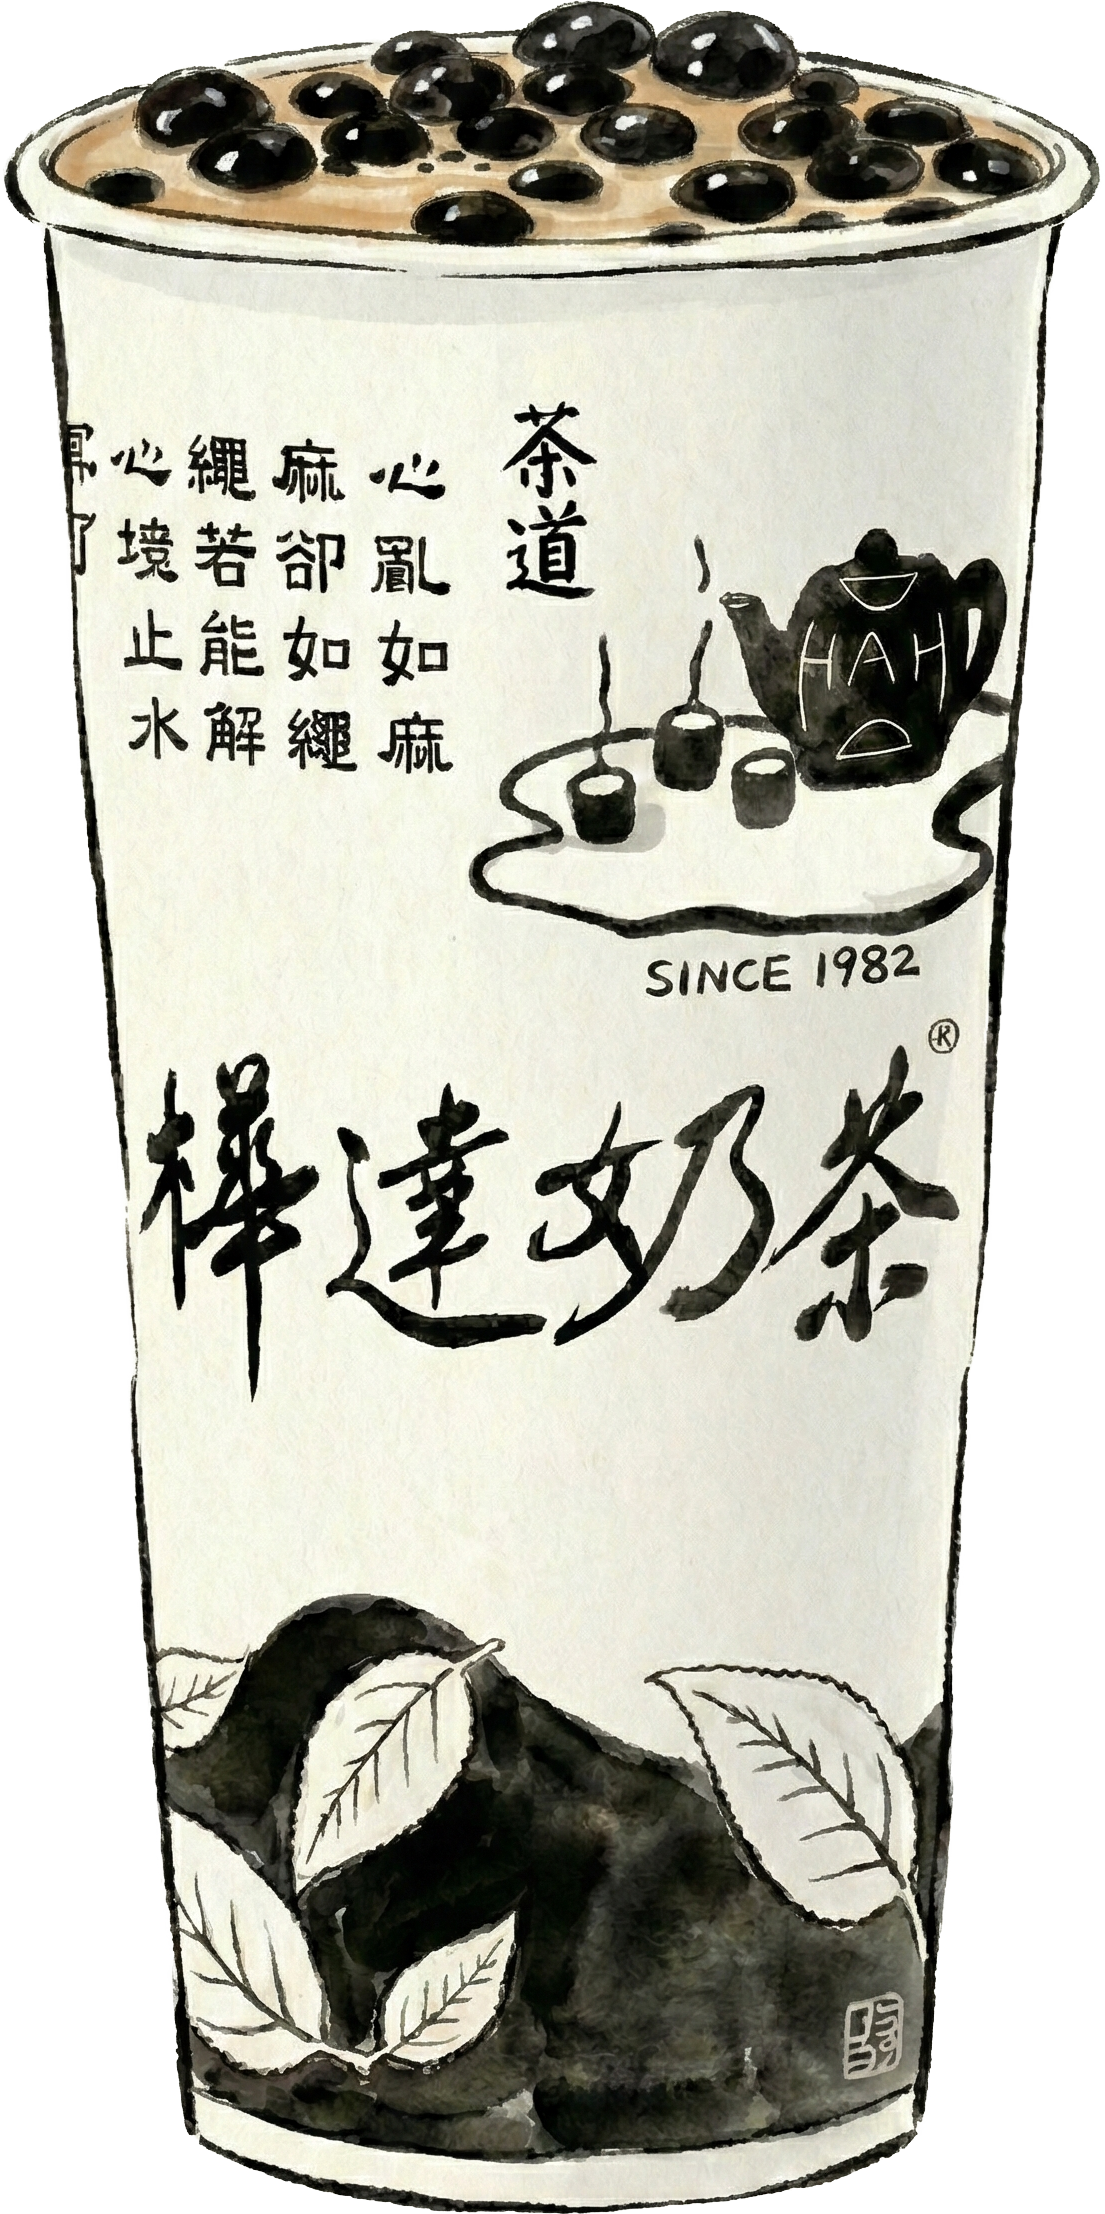 茶道
心亂如麻
麻卻如繩
繩若能解
心境止水
HAH
SINCE 1982
®
樺達奶茶